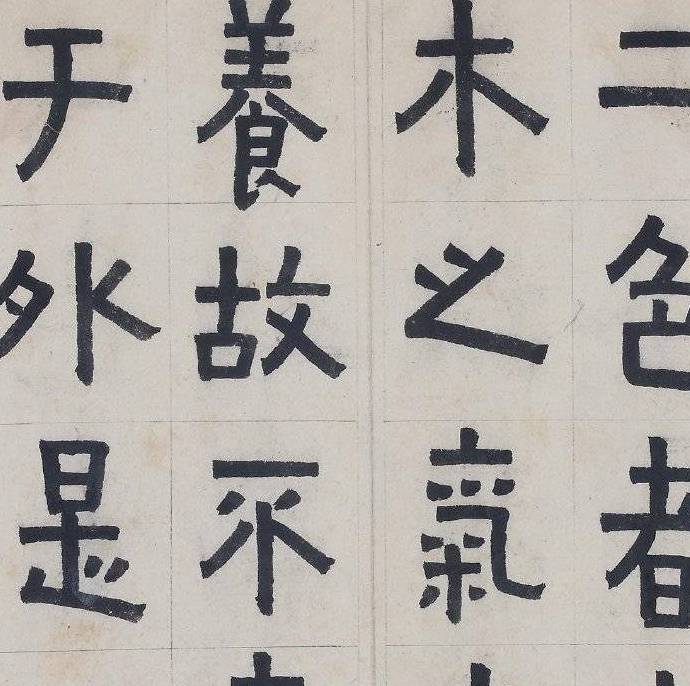 二色者
木之氣
養故不
于外是